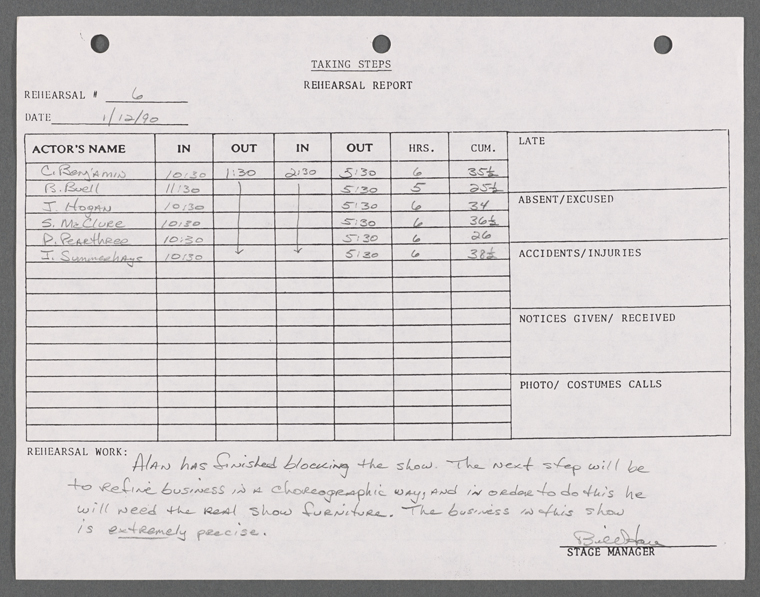 TAKING STEPS
REHEARSAL REPORT
REHEARSAL # 6
DATE 1/12/90
ACTOR'S NAME IN OUT IN OUT HRS. CUM.
C. Benjamin 10:30 1:30 2:30 5:30 6 35½
B. Buell 11:30 5:30 5 25½
J. Hogan 10:30 5:30 6 34
S. McClure 10:30 5:30 6 36½
P. Pearthree 10:30 5:30 6 26
J. Summerhays 10:30 5:30 6 38½
LATE
ABSENT/EXCUSED
ACCIDENTS/INJURIES
NOTICES GIVEN/ RECEIVED
PHOTO/ COSTUMES CALLS
REHEARSAL WORK:
Alan has finished blocking the show. The next step will be
to refine business in a choreographic way, and in order to do this he
will need the real show furniture. The business in this show
is extremely precise.
Bill Hare
STAGE MANAGER